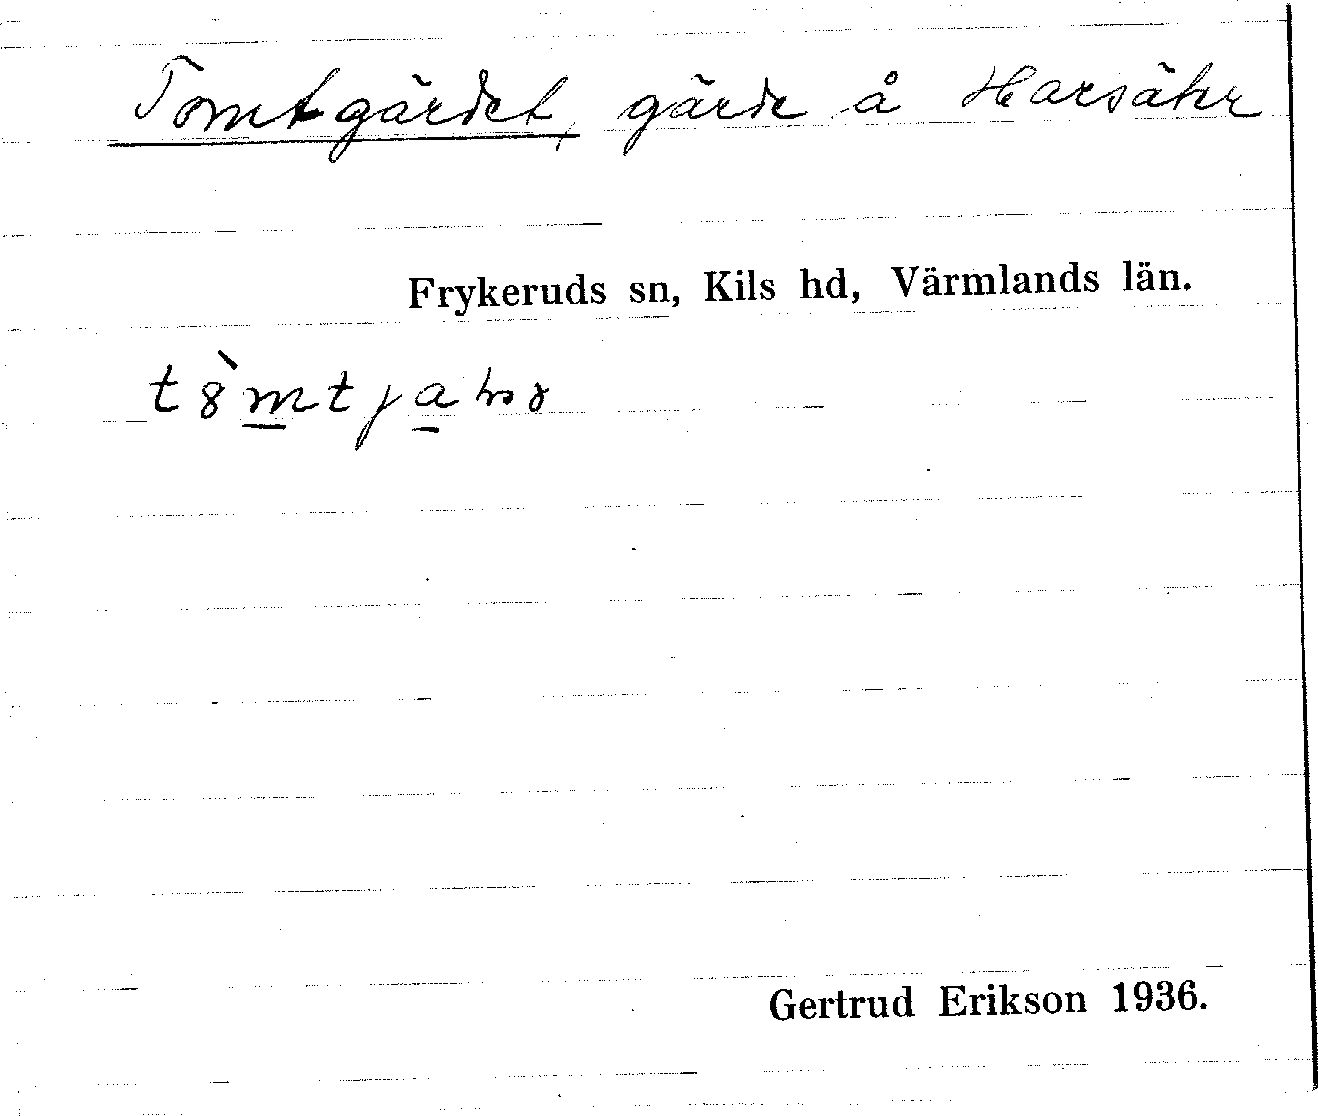 Tomtgärdet, gärde å Harsäter
Frykeruds sn, Kils hd, Värmlands län.
Gertrud Erikson 1936.